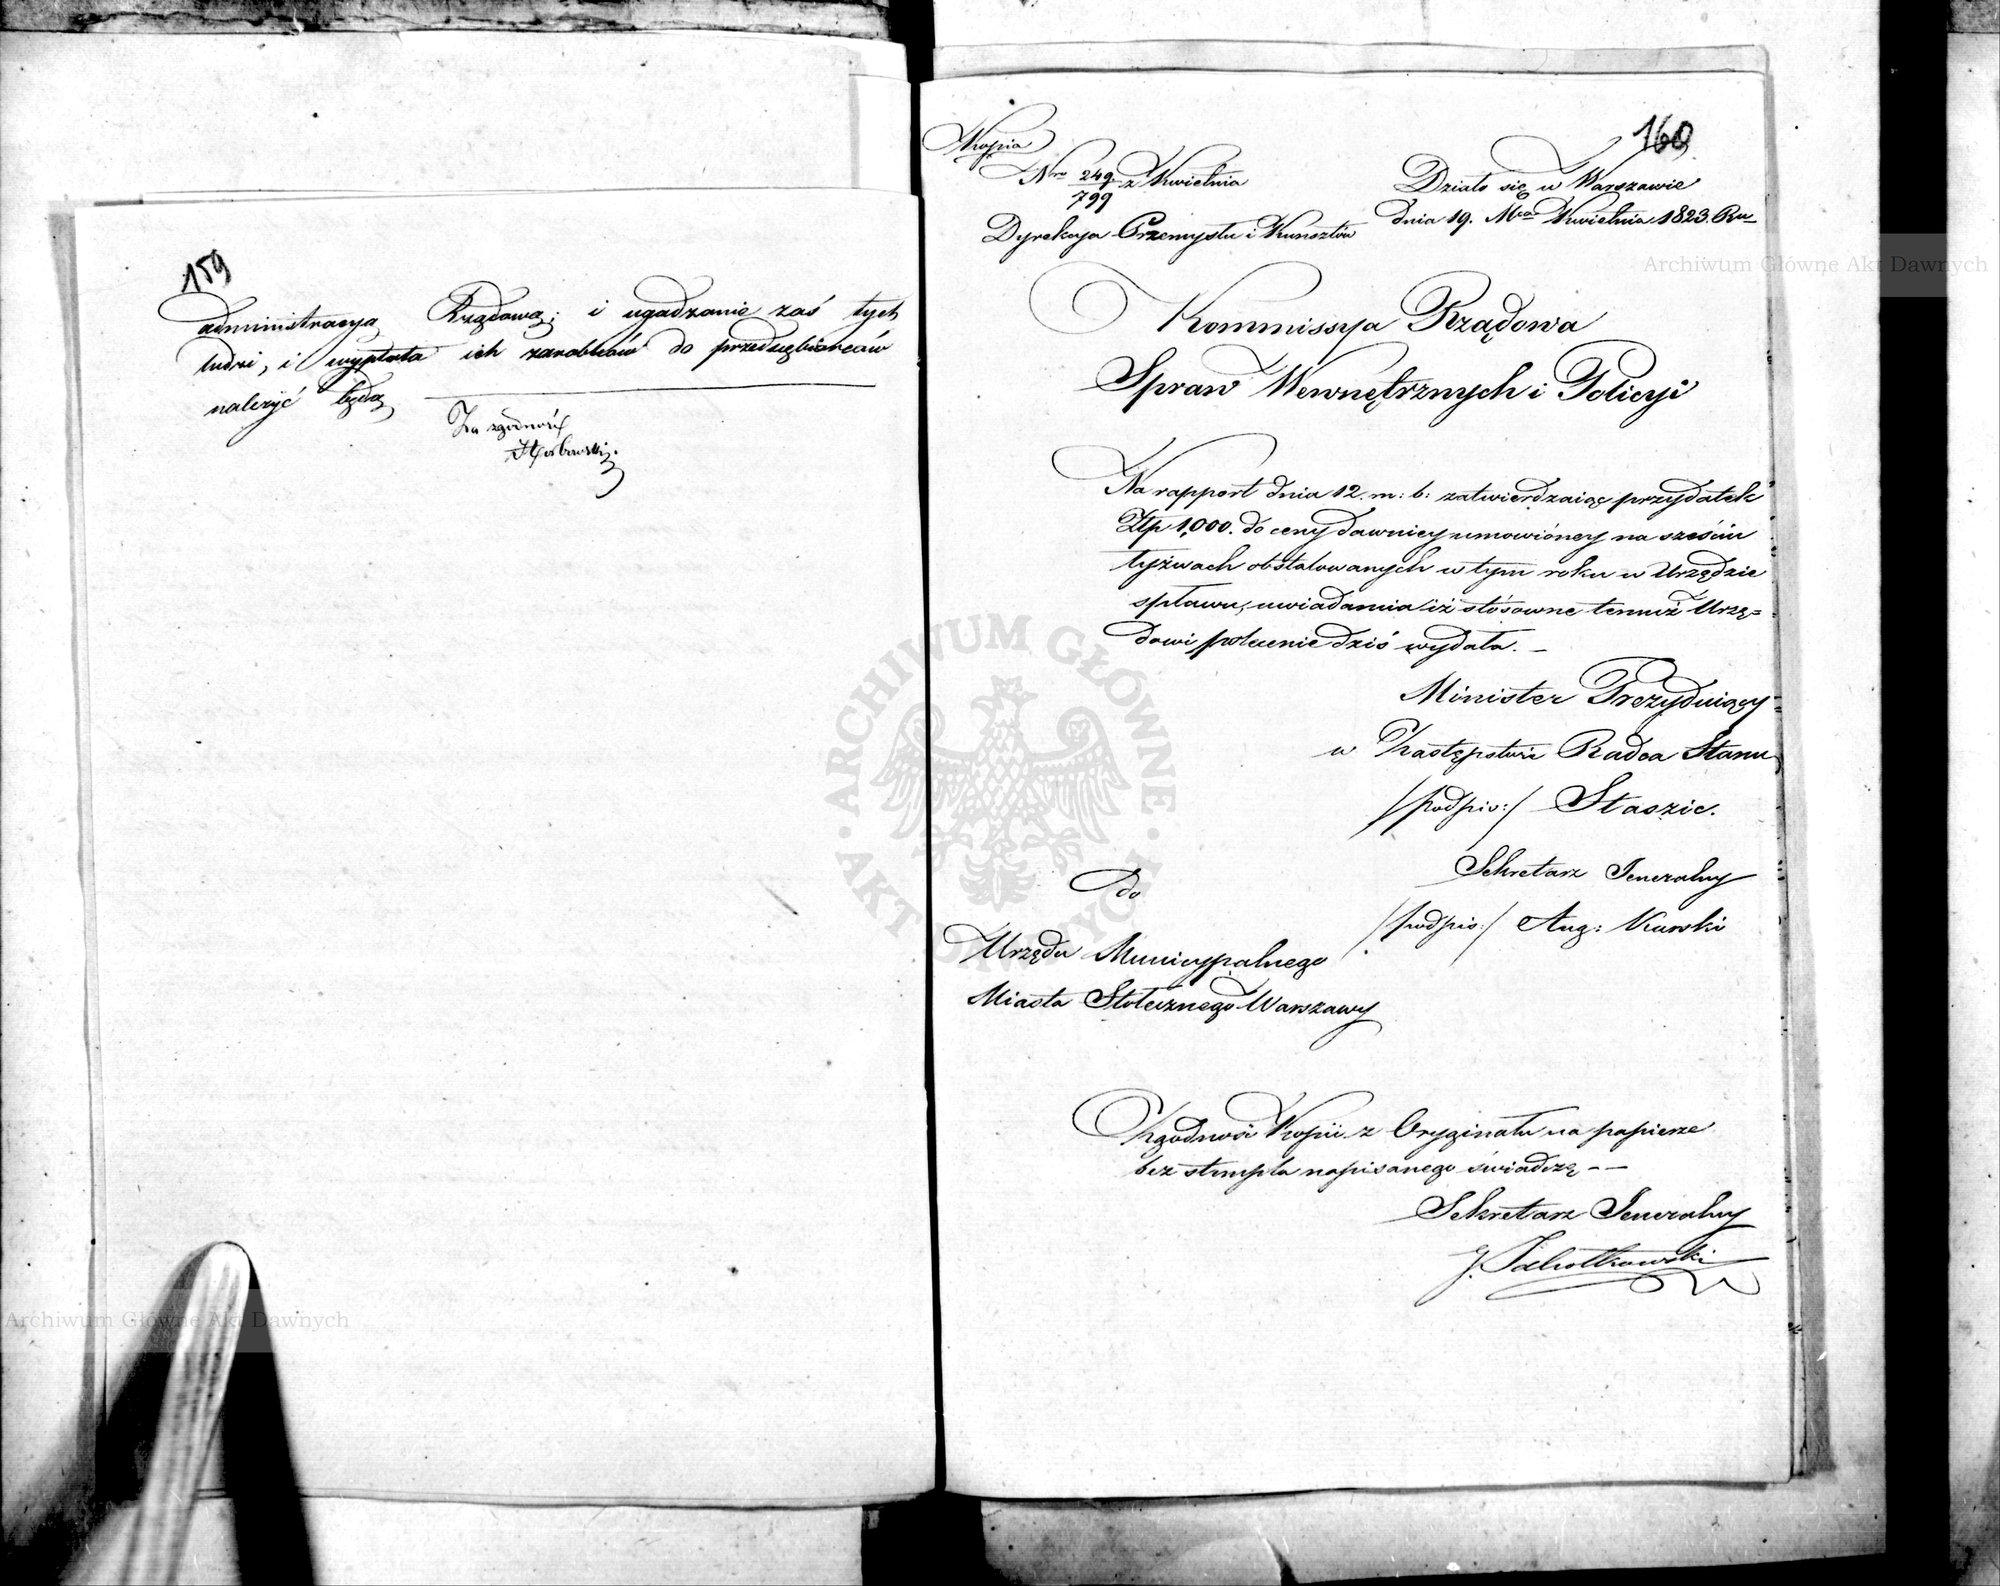 159
administracyą Rządową; i ugadzanie zaś tych
ludzi, i wypłata ich zarobków do przedsiębiorców
należyć będą
Za zgodność
160
Kopia
Nro 249/799 z Kwietnia
Działo się w Warszawie
dnia 19. Mca Kwietnia 1823. Ru-
Dyrekcya Przemysłu i Kunsztów
Kommissya Rządowa
Spraw Wewnętrznych i Policyi
Na rapport dnia 12. m: b: zatwierdzaiąc przydatek
Złp 1,000. do ceny dawniey umowióney na sześciu
łyżwach obstalowanych w tym roku w Urzędzie
spławu, uwiadamia iż stósowne temuż Urzę=
dowi polecenie dziś wydała. -
Minister Prezyduiący
w Zastępstwie Radca Stanu
/podpis:/ Staszic.
Sekretarz Jeneralny
/podpis:/ Aug: Karski
Do
Urzędu Municypalnego
Miasta Stołecznego Warszawy
Zgodność Kopii z Oryginału na papierze
bez stempla napisanego świadczę - -
Sekretarz Jeneralny
Archiwum Główne Akt Dawnych
Archiwum Główne Akt Dawnych
ARCHIWUM GŁÓWNE AKT DAWNYCH